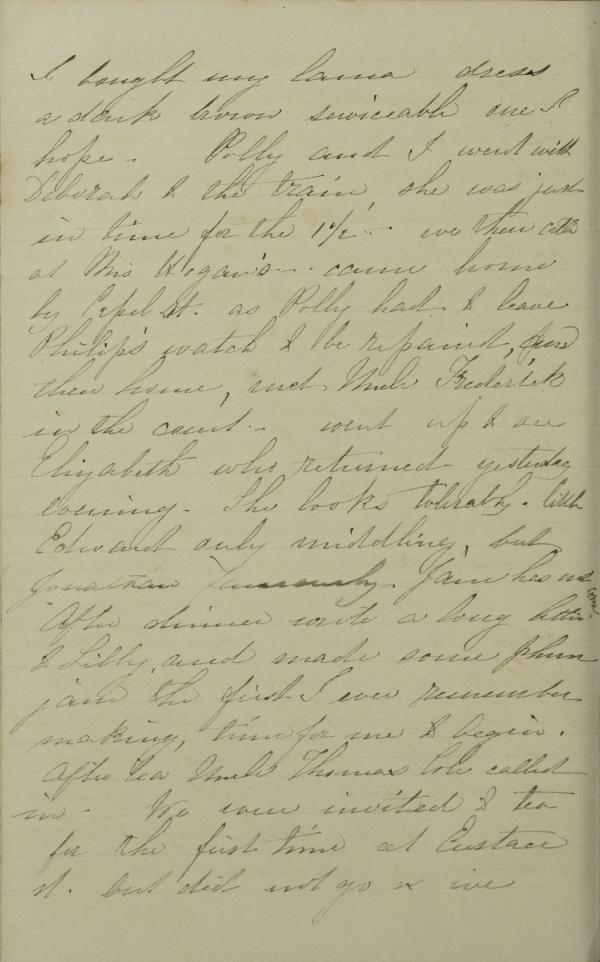 I bought my lama dress
a dark brown serviceable one I
hope. Polly and I went with
Deborah to the train, she was just
in time for the 1½ - we then
at Mrs Hogan's - came home
by Capel St. as Polly had to leave
Philip's watch to be repaired,
then home, met Uncle Frederick
in the court - went up to see
Elizabeth who returned yesterday
evening. She looks tolerably. little
Edward only middling, but
Jonathan famously. Jane has not
come.
After dinner wrote a long letter
to Lilly, and made some plum
jam the first I ever remember
making, time for me to begin.
After tea Uncle Thomas called
in - We were invited to tea
for the first time at Eustace
st. but did not go &